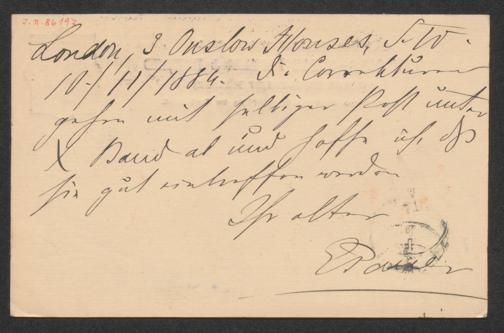 J.N. 86192
London, 3 Onslow Houses, S.W.
10/11/1884. Die Correkturen
gehen mit selbiger Post unter
X Band ab und hoffe ich, dß
sie gut eintreffen werden
Ihr alter
EPauer